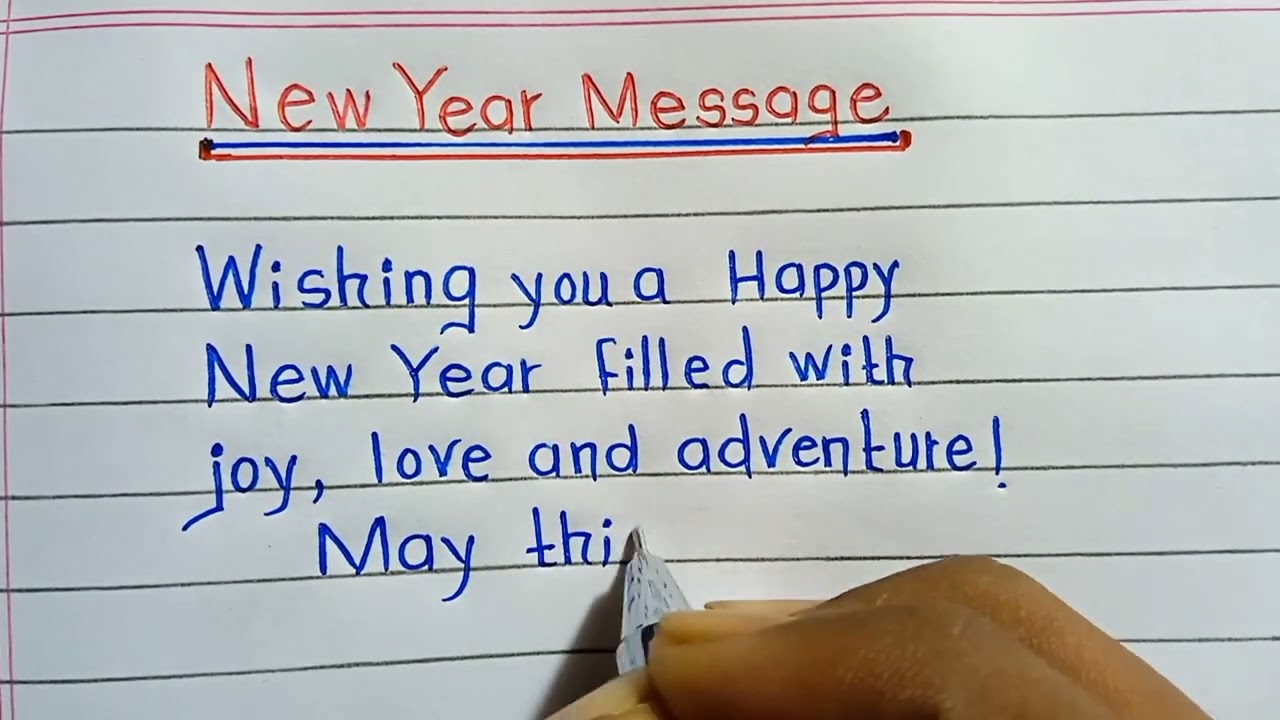 New Year Message
Wishing you a Happy
New Year filled with
joy, love and adventure!
May thi